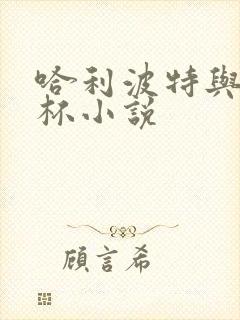 哈利波特與
杯小說
顧言希